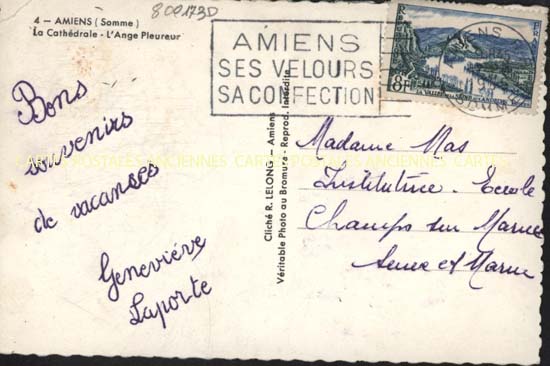 800173D
4 — AMIENS (Somme)
La Cathédrale - L'Ange Pleureur
AMIENS
SES VELOURS
SA CONFECTION
8F
Bons
souvenirs
de vacances
Geneviève
Laporte
CARTES POSTALES ANCIENNES
Cliché R. LELONG — Amiens
Véritable Photo au Bromure - Reprod. Interdite
Madame Mas
Institutrice - Ecole
Champs sur Marne
Seine et Marne